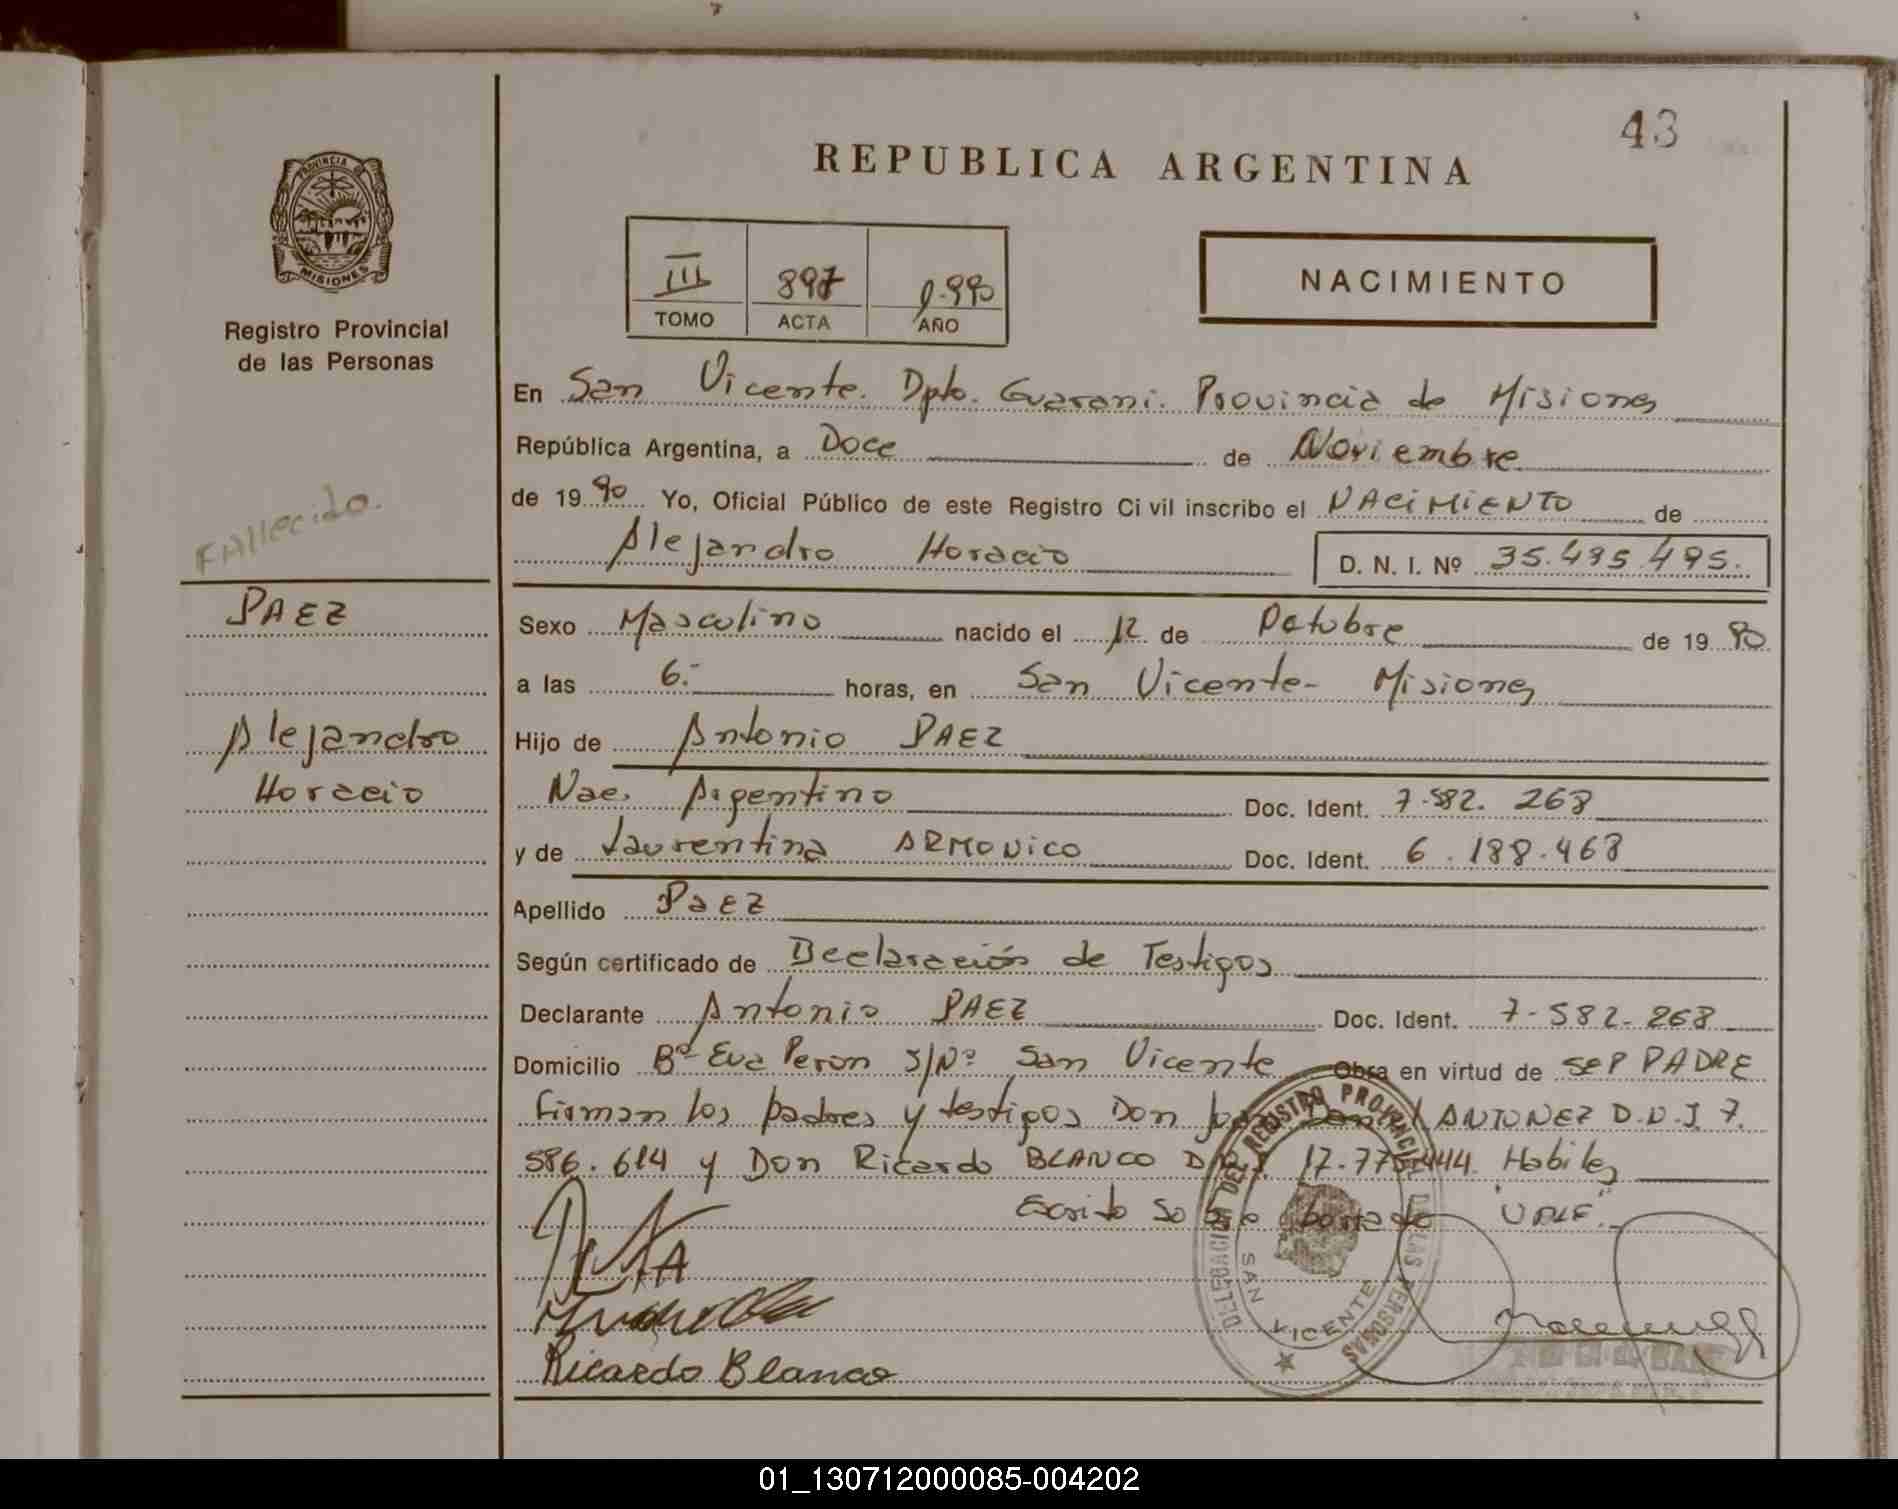 43
REPUBLICA ARGENTINA
PROVINCIA DE
MISIONES
Registro Provincial
de las Personas
III 897 1.990
TOMO ACTA AÑO
NACIMIENTO
En San Vicente. Dpto. Guarani. Provincia de Misiones
República Argentina, a Doce de Noviembre
de 1990 Yo, Oficial Público de este Registro Civil inscribo el NACIMIENTO de
Alejandro Horacio D. N. I. Nº 35.495.495.
Fallecido.
PAEZ
Alejandro
Horacio
Sexo Masculino nacido el 12 de Octubre de 1990
a las 6.- horas, en San Vicente- Misiones
Hijo de Antonio PAEZ
Nac. Argentino Doc. Ident. 7.582.268
y de Laurentina ARMONICO Doc. Ident. 6.188.468
Apellido PAEZ
Según certificado de Declaración de Testigos
Declarante Antonio PAEZ Doc. Ident. 7-582-268
Domicilio Bº- Eva Peron S/Nº San Vicente Obra en virtud de SEP PADRE
Firman los padres y testigos Don ANTUNEZ D.N.I. 7.
586.614 y Don Ricardo BLANCO 17.775.444 Habiles
Escrito Sobre borrado
Ricardo Blanco
DELEGACION DEL REGISTRO PROVINCIAL DE LAS PERSONAS
SAN VICENTE
01_130712000085-004202